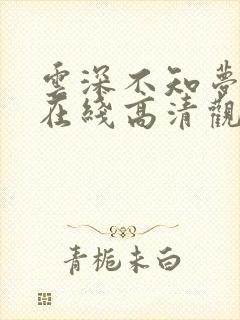 雲深不知夢
在綫高清觀
青梔未白